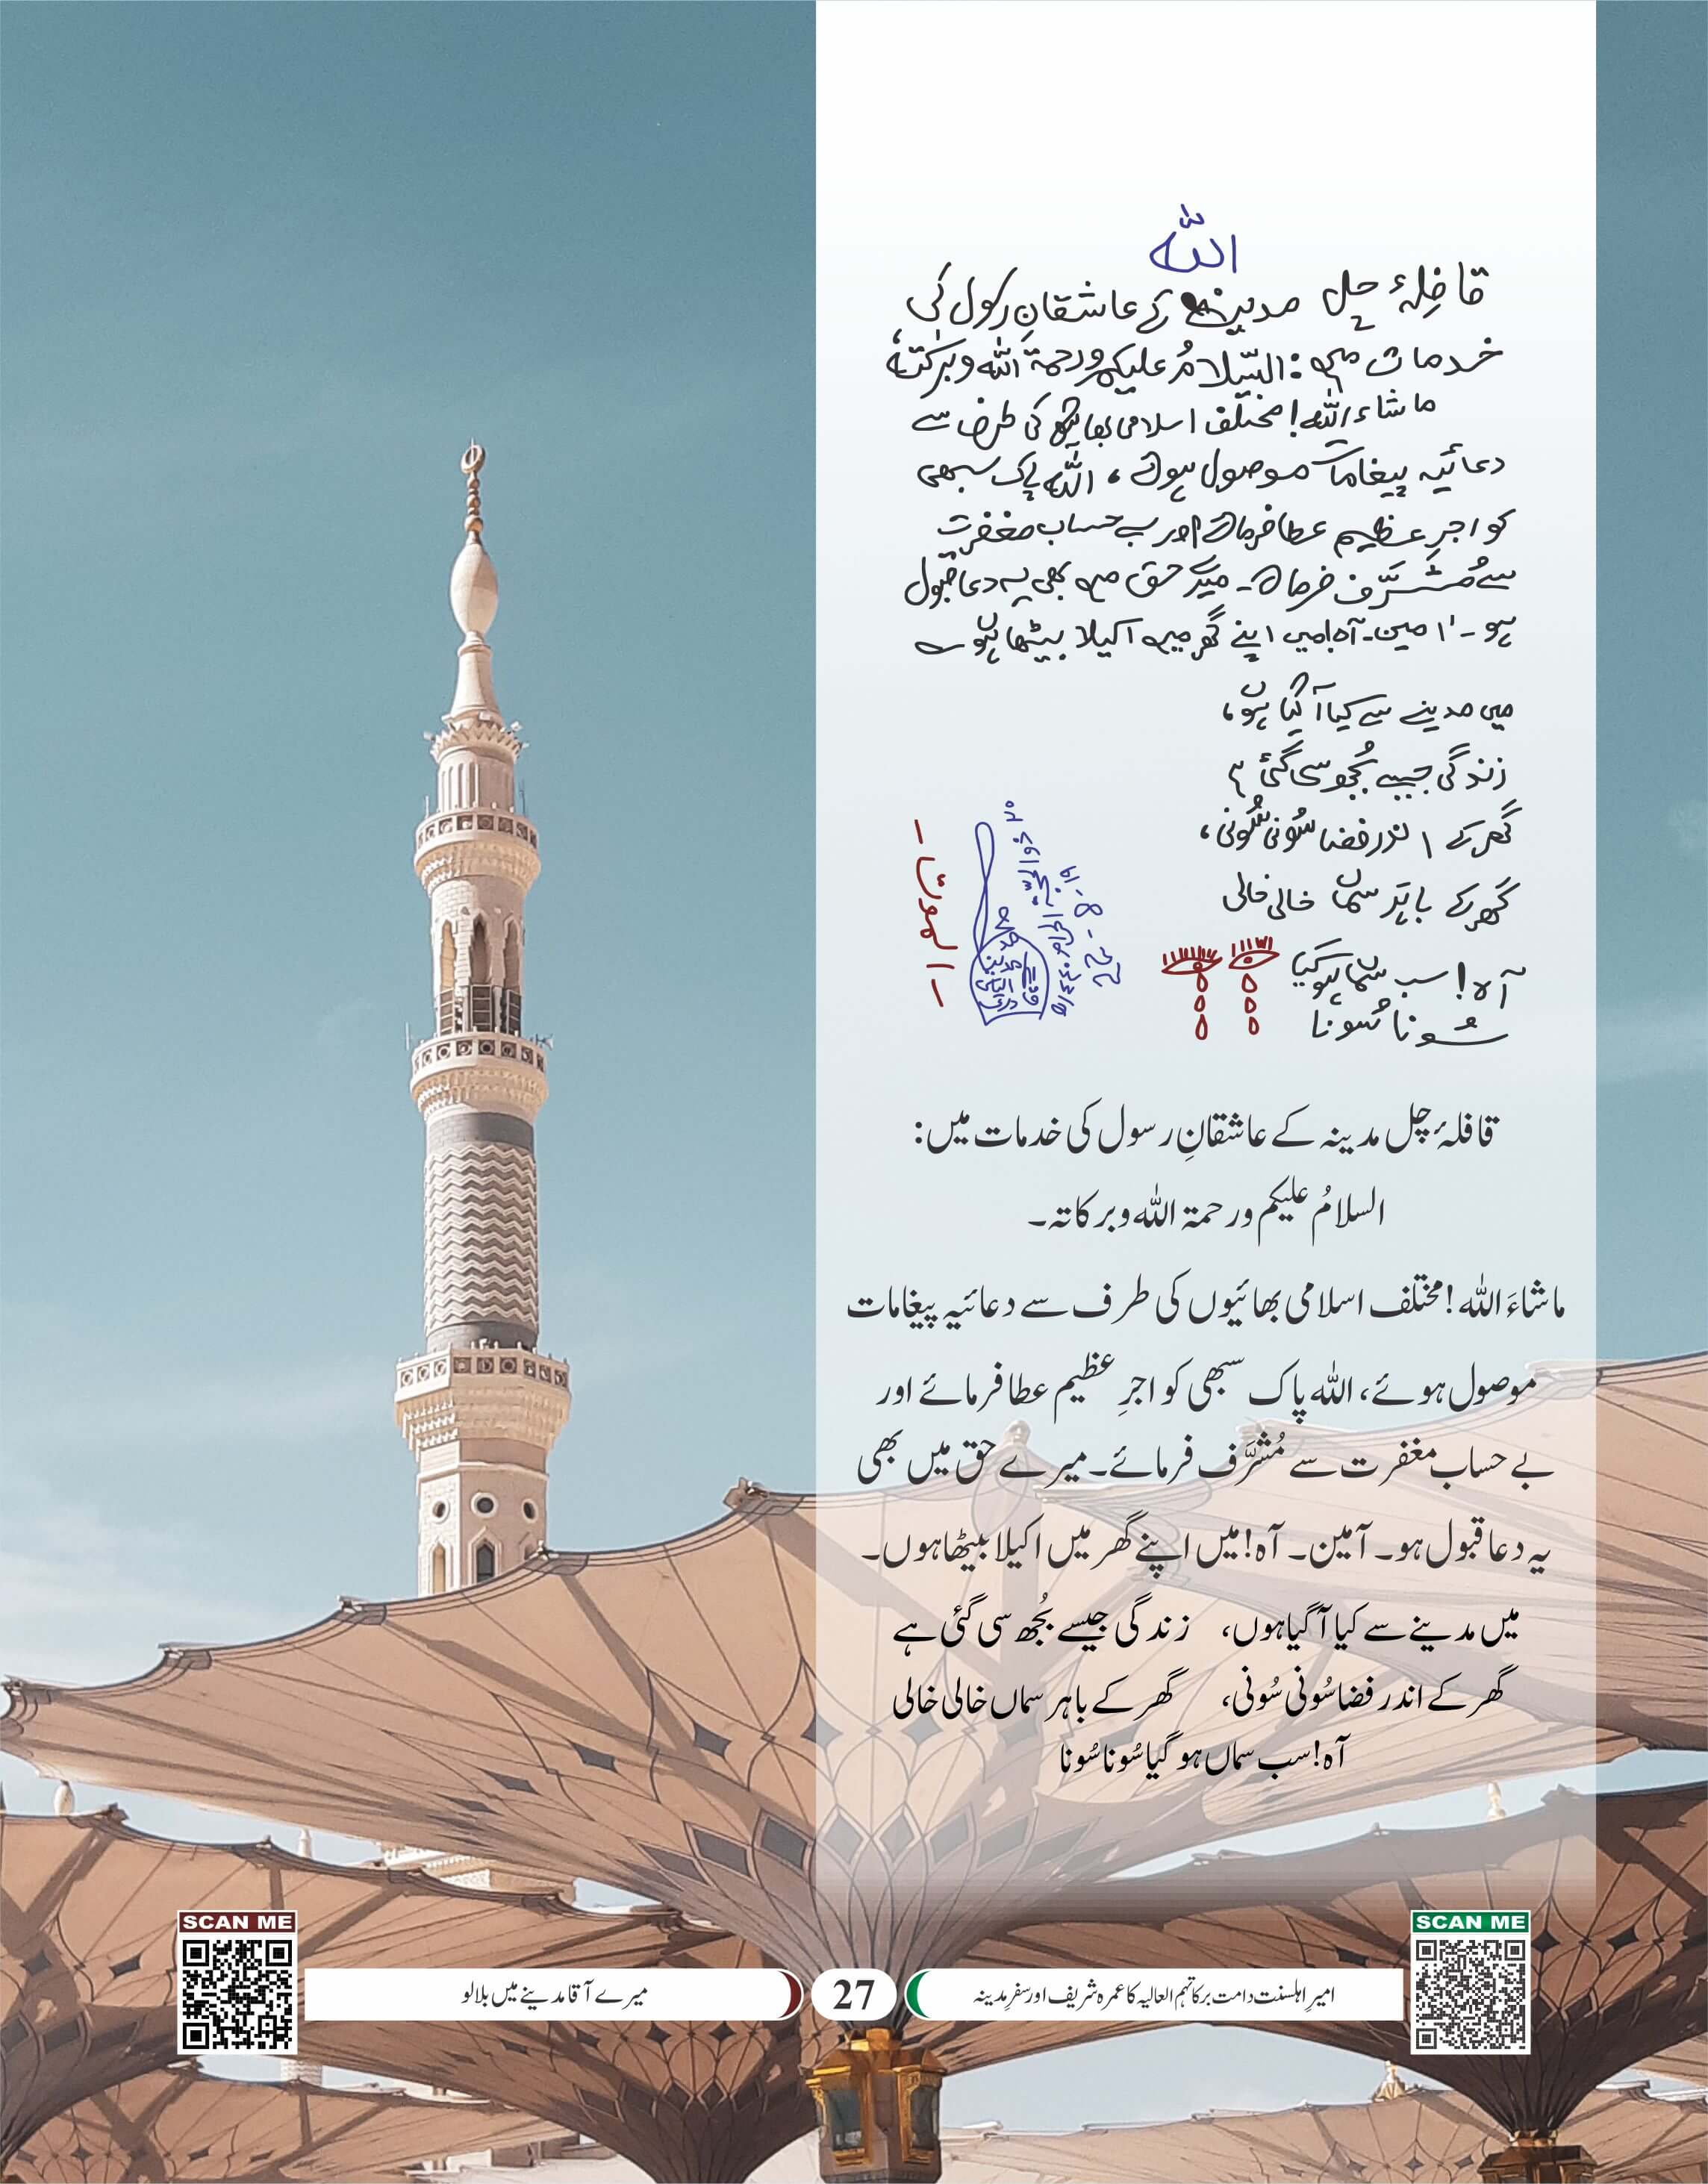 اللہ
قافِلۂ چل مدینہ کے عاشقانِ رسول کی
خدمات میں: السّلامُ علیکم ورحمۃ اللہ وبرکاتہٗ
ماشاءاللہ! مختلف اسلامی بھائیوں کی طرف سے
دعائیہ پیغامات موصول ہوئے، اللہ پاک سبھی
کو اجرِ عظیم عطا فرمائے اور بے حساب مغفرت
سے مُشرَّف فرمائے۔ میرے حق میں بھی یہ دعا قبول
ہو۔ اٰمین۔ آہ! میں اپنے گھر میں اکیلا بیٹھا ہوں ؎
میں مدینے سے کیا آ گیا ہوں،
زندگی جیسے بُجھ سی گئی ہے
گھر کے اندر فضا سُونی سُونی،
گھر کے باہر سماں خالی خالی
آہ! سب سماں ہو گیا
سُونا سُونا
۔ الموت ۔
قافلۂ چل مدینہ کے عاشقانِ رسول کی خدمات میں:
السلامُ علیکم ورحمۃ اللہ وبرکاتہ۔
ماشاءَ اللہ! مختلف اسلامی بھائیوں کی طرف سے دعائیہ پیغامات
موصول ہوئے، اللہ پاک سبھی کو اجرِ عظیم عطا فرمائے اور
بے حساب مغفرت سے مُشرَّف فرمائے۔ میرے حق میں بھی
یہ دعا قبول ہو۔ آمین۔ آہ! میں اپنے گھر میں اکیلا بیٹھا ہوں۔
میں مدینے سے کیا آ گیا ہوں، زندگی جیسے بُجھ سی گئی ہے
گھر کے اندر فضا سُونی سُونی، گھر کے باہر سماں خالی خالی
آہ! سب سماں ہو گیا سُونا سُونا
SCAN ME
امیرِ اہلسنت دامت برکاتہم العالیہ کا عمرہ شریف اور سفرِ مدینہ
27
میرے آقا مدینے میں بلا لو
SCAN ME